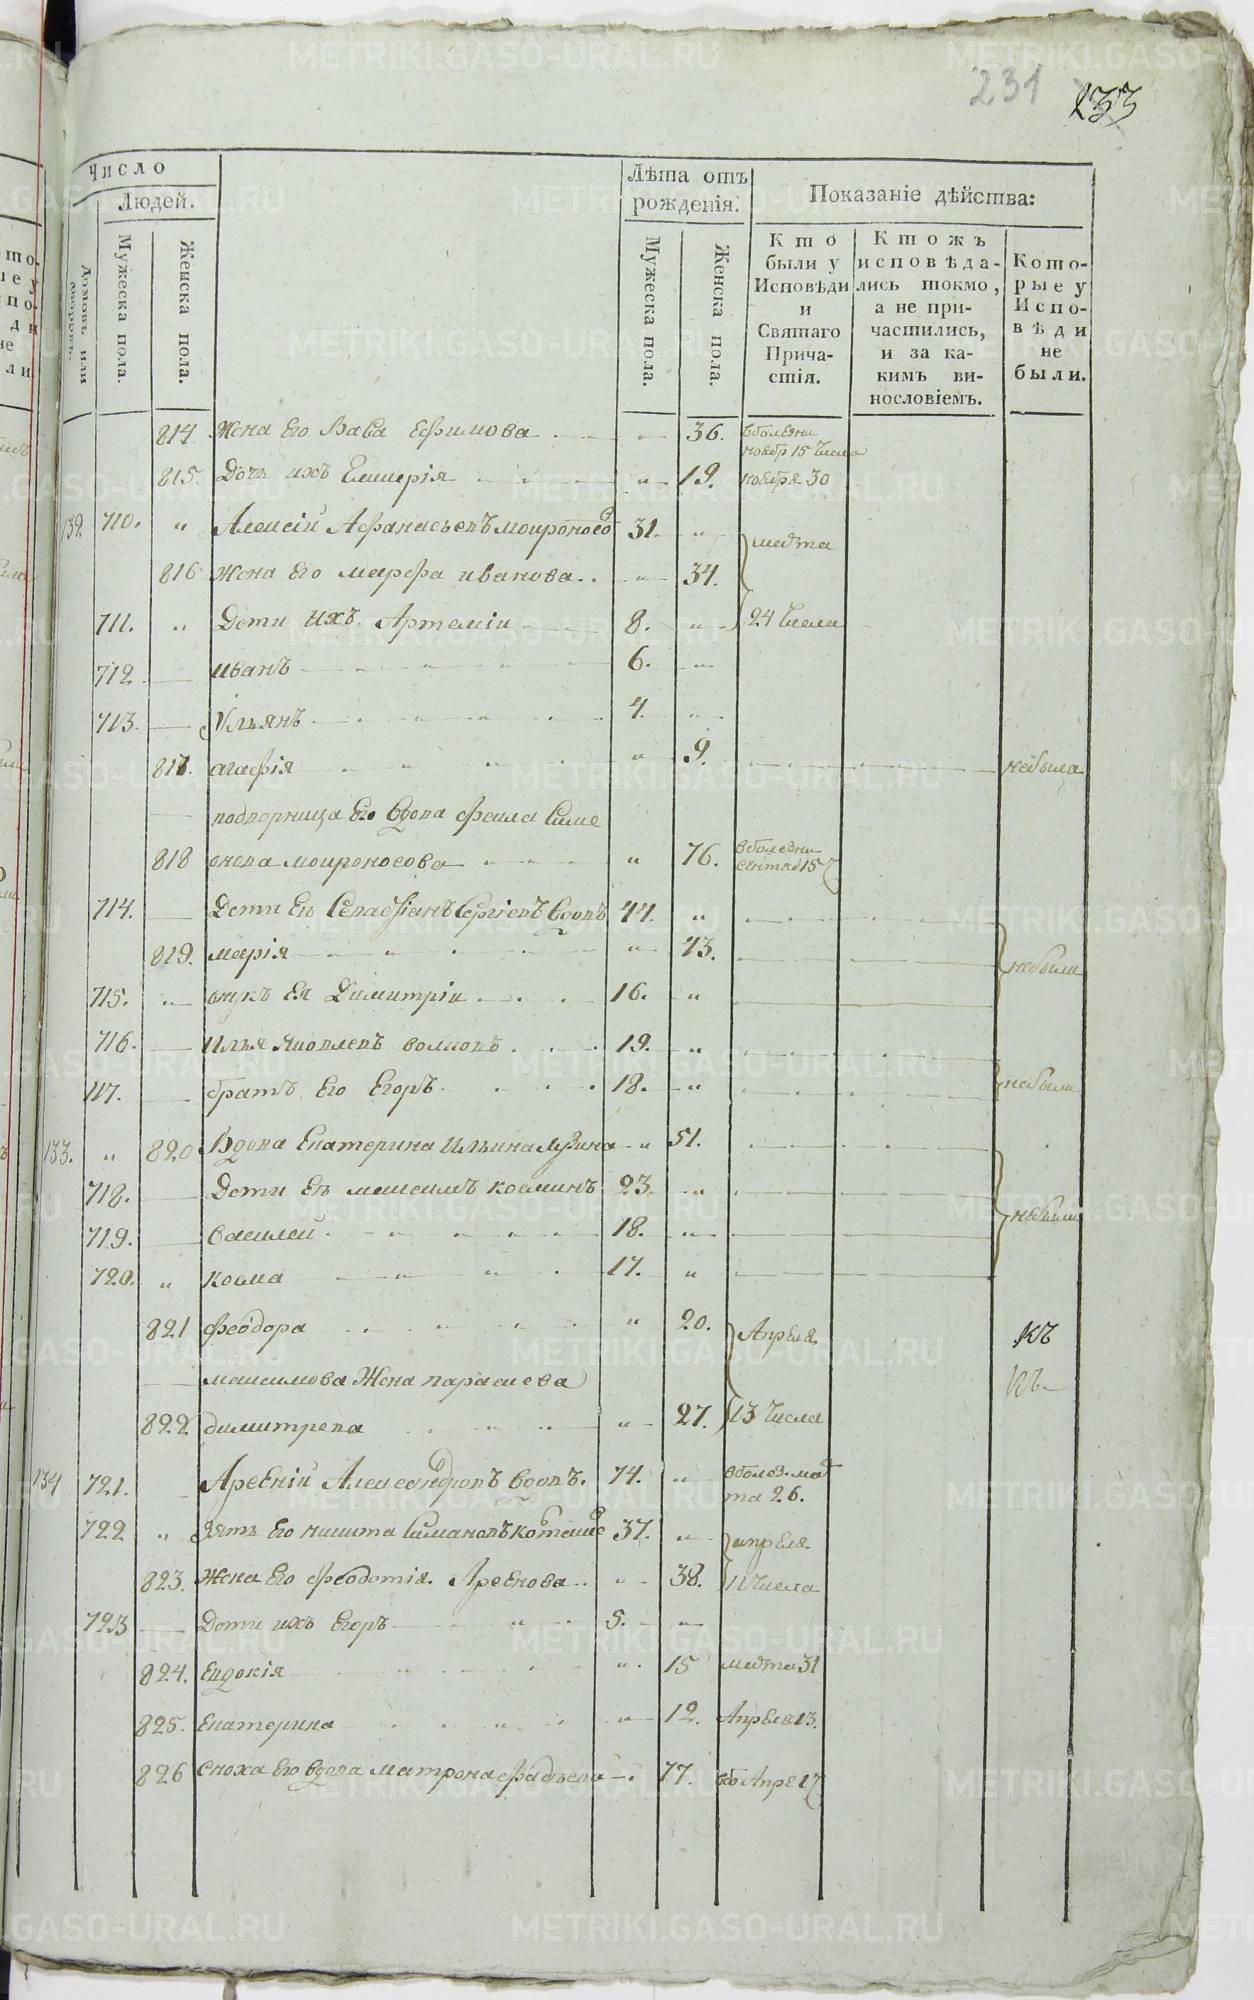 231 233
Число
Людей.
Домовъ или дворовъ.
Мужеска пола.
Женска пола.
Лѣта отъ рожденія.
Мужеска пола.
Женска пола.
Показаніе дѣйства:
Кто были у Исповѣди и Святаго Причастія.
Ктожъ исповѣдались токмо, а не причастились, и за какимъ винословіемъ.
Которые у Исповѣди не были.
814 Жена Его Васа Ефимова 36. вболезни
ноября 15 числа
815. Дочь ихъ Гликерія 19. ноября 30
132 710. Алексій Афанасьевъ мокроносов 31. марта
816 Жена Его марфа иванова 34.
711. Дети ихъ Артемій 8. 24 числа
712 иванъ 6.
713. Ульянъ 4.
817. агафія 9. небыла
подворница Его вдова Фекла Симе
818 онова мокроносова 76. вболезни
сентяб 15
714. Дети Ея Севастіанъ Сергіевъ вдовъ 44.
819. марія 43. небыли
715. внукъ Ея Димитрій 16.
716. Илья Яковлевъ волковъ 19.
717. братъ Его Егоръ 18. небыли
133. 820 Вдова Екатерина Ильина 51.
718. Дети Ея максимъ козминъ 23.
719. василей 18. небыли
720. козма 17.
821 феодора 20. Апреля
максимова Жена параскева
822 димитрева 27. 13 числа
къ
къ
134 721. Арсеній Александровъ вдовъ. 74. вболез. мар
та 26.
722 Зять Его никита Симановъ 37. апреля
823. Жена Его Феодотія Арсенова 38. 11 числа
723 Дети ихъ Егоръ 5.
824. Евдокія 15 марта 31
825. Екатерина 12. Апреля 13.
826 сноха Его вдова матрона Фадѣева 77. вбо Апре 17
METRIKI.GASO-URAL.RU